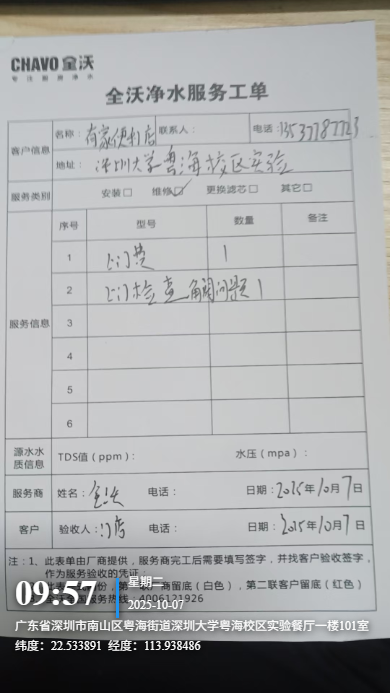 CHAVO 全沃
专注智能净水
全沃净水服务工单
客户信息
名称：有家便利店 联系人： 电话：
地址：深圳大学粤海校区实验
服务类别 安装□ 维修☑ 更换滤芯□ 其它□
服务信息
序号 型号 数量 备注
1 上门费 1
2 上门检查解决问题 1
3
4
5
6
源水水质信息 TDS值（ppm）： 水压（mpa）：
服务商 姓名：全沃 电话： 日期：2025年10月7日
客户 验收人：门店 电话： 日期：2025年10月7日
注：1、此表单由厂商提供，服务商完工后需要填写签字，并找客户验收签字，
作为服务验收的凭证；
份，第一联厂商留底（白色），第二联客户留底（红色）
服务热线：4006121926
09:57 星期二
2025-10-07
广东省深圳市南山区粤海街道深圳大学粤海校区实验餐厅一楼101室
纬度：22.533891 经度：113.938486